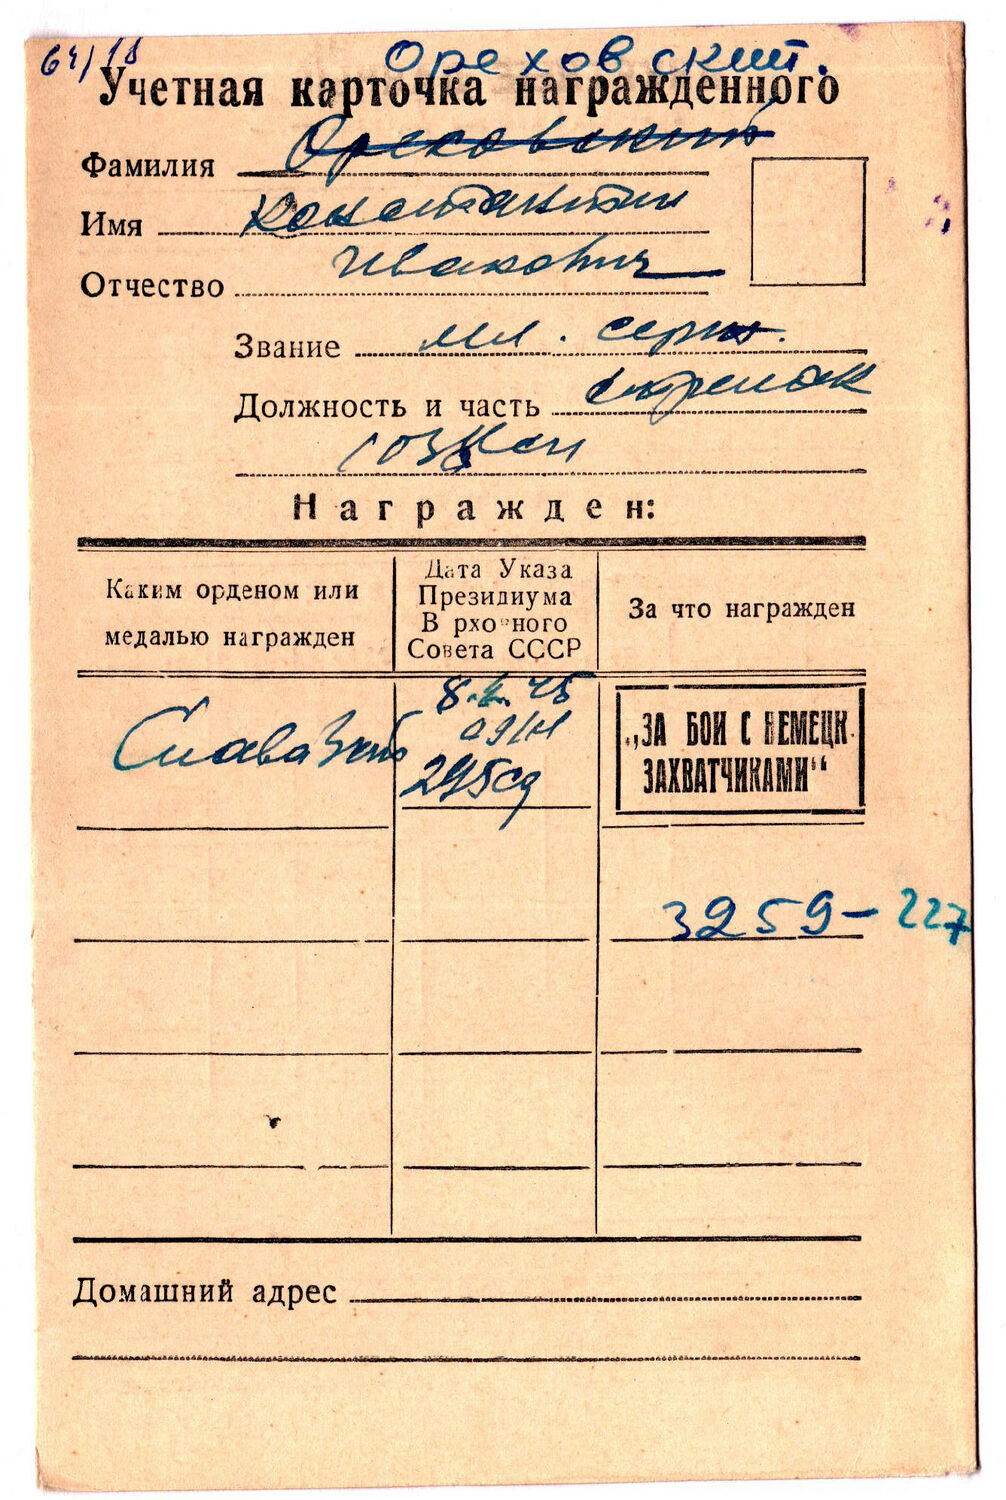 Ореховский.
Учетная карточка награжденного
Фамилия Ореховский
Имя Константин
Отчество Иванович
Звание мл. серж.
Должность и часть стрелок
Награжден:
Каким орденом или
медалью награжден
Дата Указа
Президиума
В рхо ного
Совета СССР
За что награжден
Слава 3 ст
45
09/Н
295 сд
„ЗА БОИ С НЕМЕЦК.
ЗАХВАТЧИКАМИ“
3259 - 227
Домашний адрес